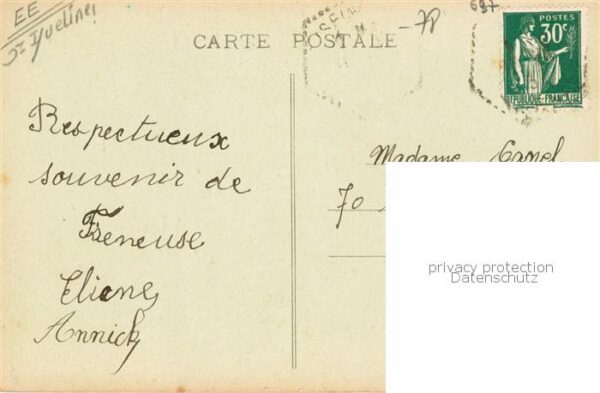 EE
St Yvelines
- 78
697
CARTE POSTALE
POSTES
30c
REPUBLIQUE FRANÇAISE
Respectueux
souvenir de
Freneuse
Eliane
Annick
Madame
70
privacy protection
Datenschutz